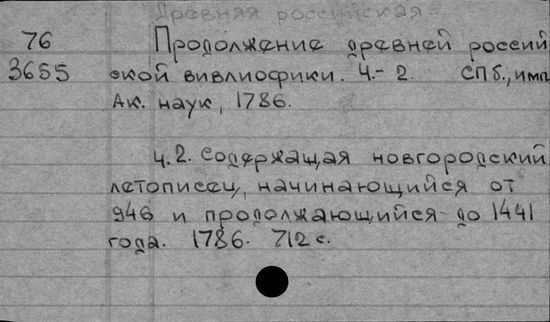 Древняя российская
76 Продолжение древней россий
3655 ской вивлиофики. Ч.- 2. СПб., имп
Ак. наук, 1786.
Ч. 2. Содержащая новгородский
летописец, начинающийся от
946 и продолжающийся до 1441
года. 1786. 712 с.